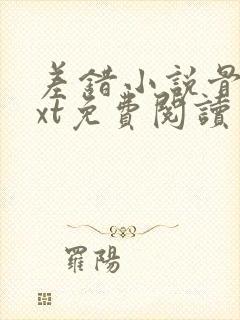 差錯小說骨
xt免費閱讀
羅陽